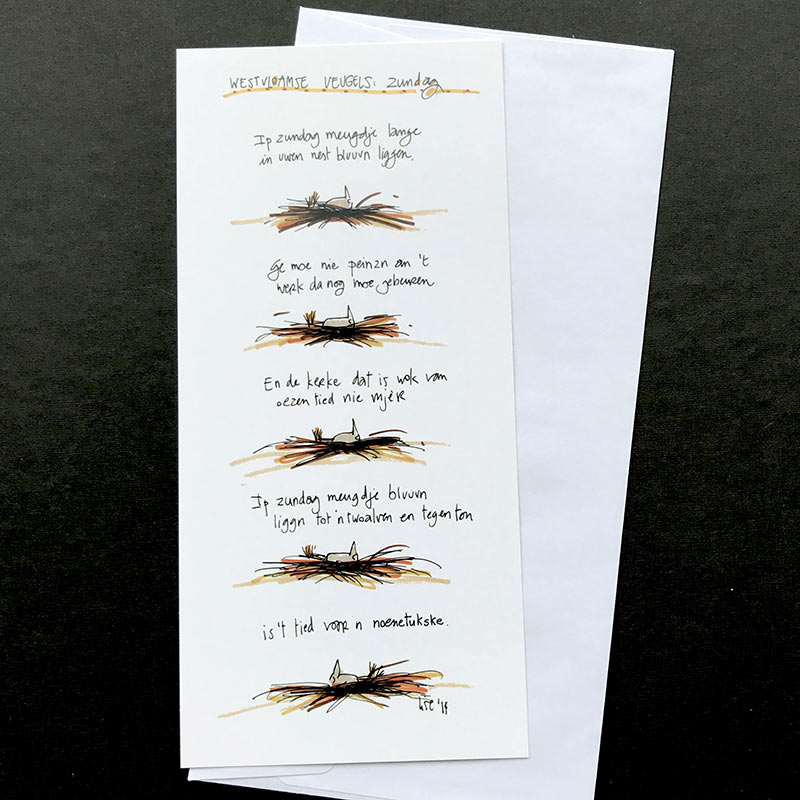 WESTVLOAMSE VEUGELS: zundag
Ip zundag meugdje lange
in uwen nest bluuvn liggen.
Ge moe nie peinzn an 't
werk da nog moe gebeuren
En de kerke dat is wok van
oezen tied nie mjèr
Ip zundag meugdje bluuvn
liggn tot 'n twoalven en tegen ton
is 't tied voor n noenetukske.